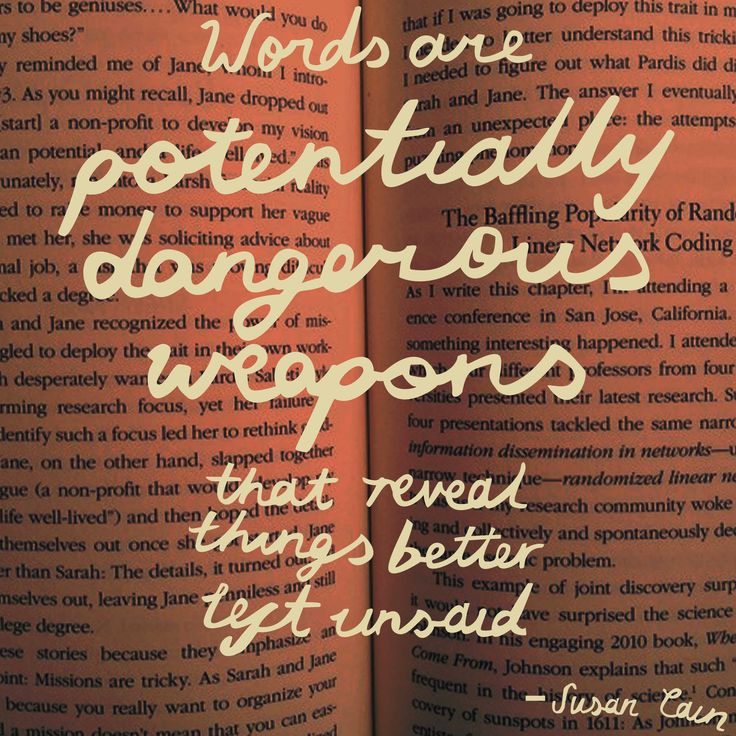 Words are
potentially
dangerous
weapons
that reveal
things better
left unsaid
-Susan Cain
rs to be geniuses.... What would you do
my shoes?"
y reminded me of Jane, whom I intro-
3. As you might recall, Jane dropped out
[start] a non-profit to develop my vision
an potential and life well-lived."
unately, harsh reality
ed to raise money to support her vague
met her, she was soliciting advice about
nal job, a
cked a degree.
and Jane recognized the power of mis-
gled to deploy the trait in their own work-
h desperately
rming research focus, yet her failure
dentify such a focus led her to rethink
ane, on the other hand, slapped together
gue (a non-profit that would
life well-lived") and then hoped the
themselves out once she Jane
er than Sarah: The details, it turned out,
mselves out, leaving Jane penniless and still
lege degree.
ese stories because they emphasize an
oint: Missions are tricky. As Sarah and Jane
because you really want to organize your
d a mission doesn't mean that you can eas-
that if I was going to deploy this trait in m
better understand this tricki
I needed to figure out what Pardis did di
rah and Jane. The answer I eventually
an unexpected place: the attempts
The Baffling Popularity of Rand
Linear Network Coding
As I write this chapter, I'm attending a
ence conference in San Jose, California.
something interesting happened. I attende
different professors from four
versities presented their latest research. Su
four presentations tackled the same narro
information dissemination in networks—u
narrow technique—randomized linear ne
research community woke
ing and collectively and spontaneously de
problem.
This example of joint discovery surp
it would not have surprised the science
In his engaging 2010 book, Whe
Come From, Johnson explains that such "
frequent in the history of science.¹ Con
covery of sunspots in 1611: As John